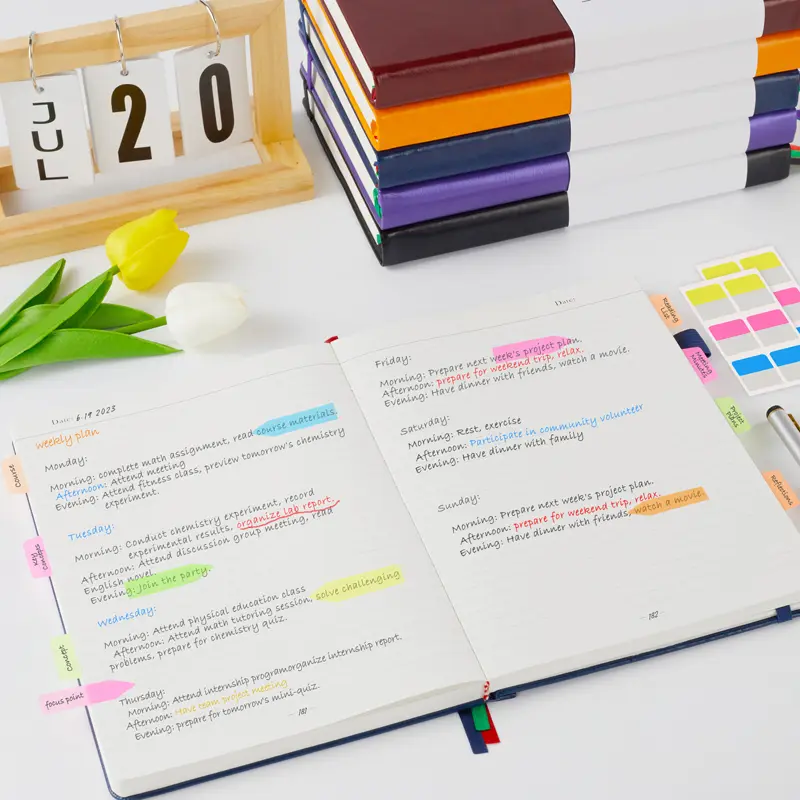 JUL
2
0
Date: 6.19 2023
weekly plan
Monday:
Morning: complete math assignment, read course materials.
Afternoon: Attend meeting
Evening: Attend fitness class, preview tomorrow's chemistry
experiment.
Tuesday:
Morning: Conduct chemistry experiment, record
experimental results, organize lab report.
Afternoon: Attend discussion group meeting, read
English novel.
Evening: Join the party.
Wednesday:
Morning: Attend physical education class
Afternoon: Attend math tutoring session, solve challenging
problems, prepare for chemistry quiz.
Thursday:
Morning: Attend internship programorganize internship report.
Afternoon: Have team project meeting
Evening: prepare for tomorrow's mini-quiz.
181
Course
Key Concepts
Concept
focus point
Date:
Friday:
Morning: Prepare next week's project plan.
Afternoon: prepare for weekend trip, relax.
Evening: Have dinner with friends, watch a movie.
Saturday:
Morning: Rest, exercise
Afternoon: Participate in community volunteer
Evening: Have dinner with family
Sunday:
Morning: Prepare next week's project plan.
Afternoon: prepare for weekend trip, relax.
Evening: Have dinner with friends, watch a movie.
182
Reading
List
Meeting
Minutes
Project
Plans